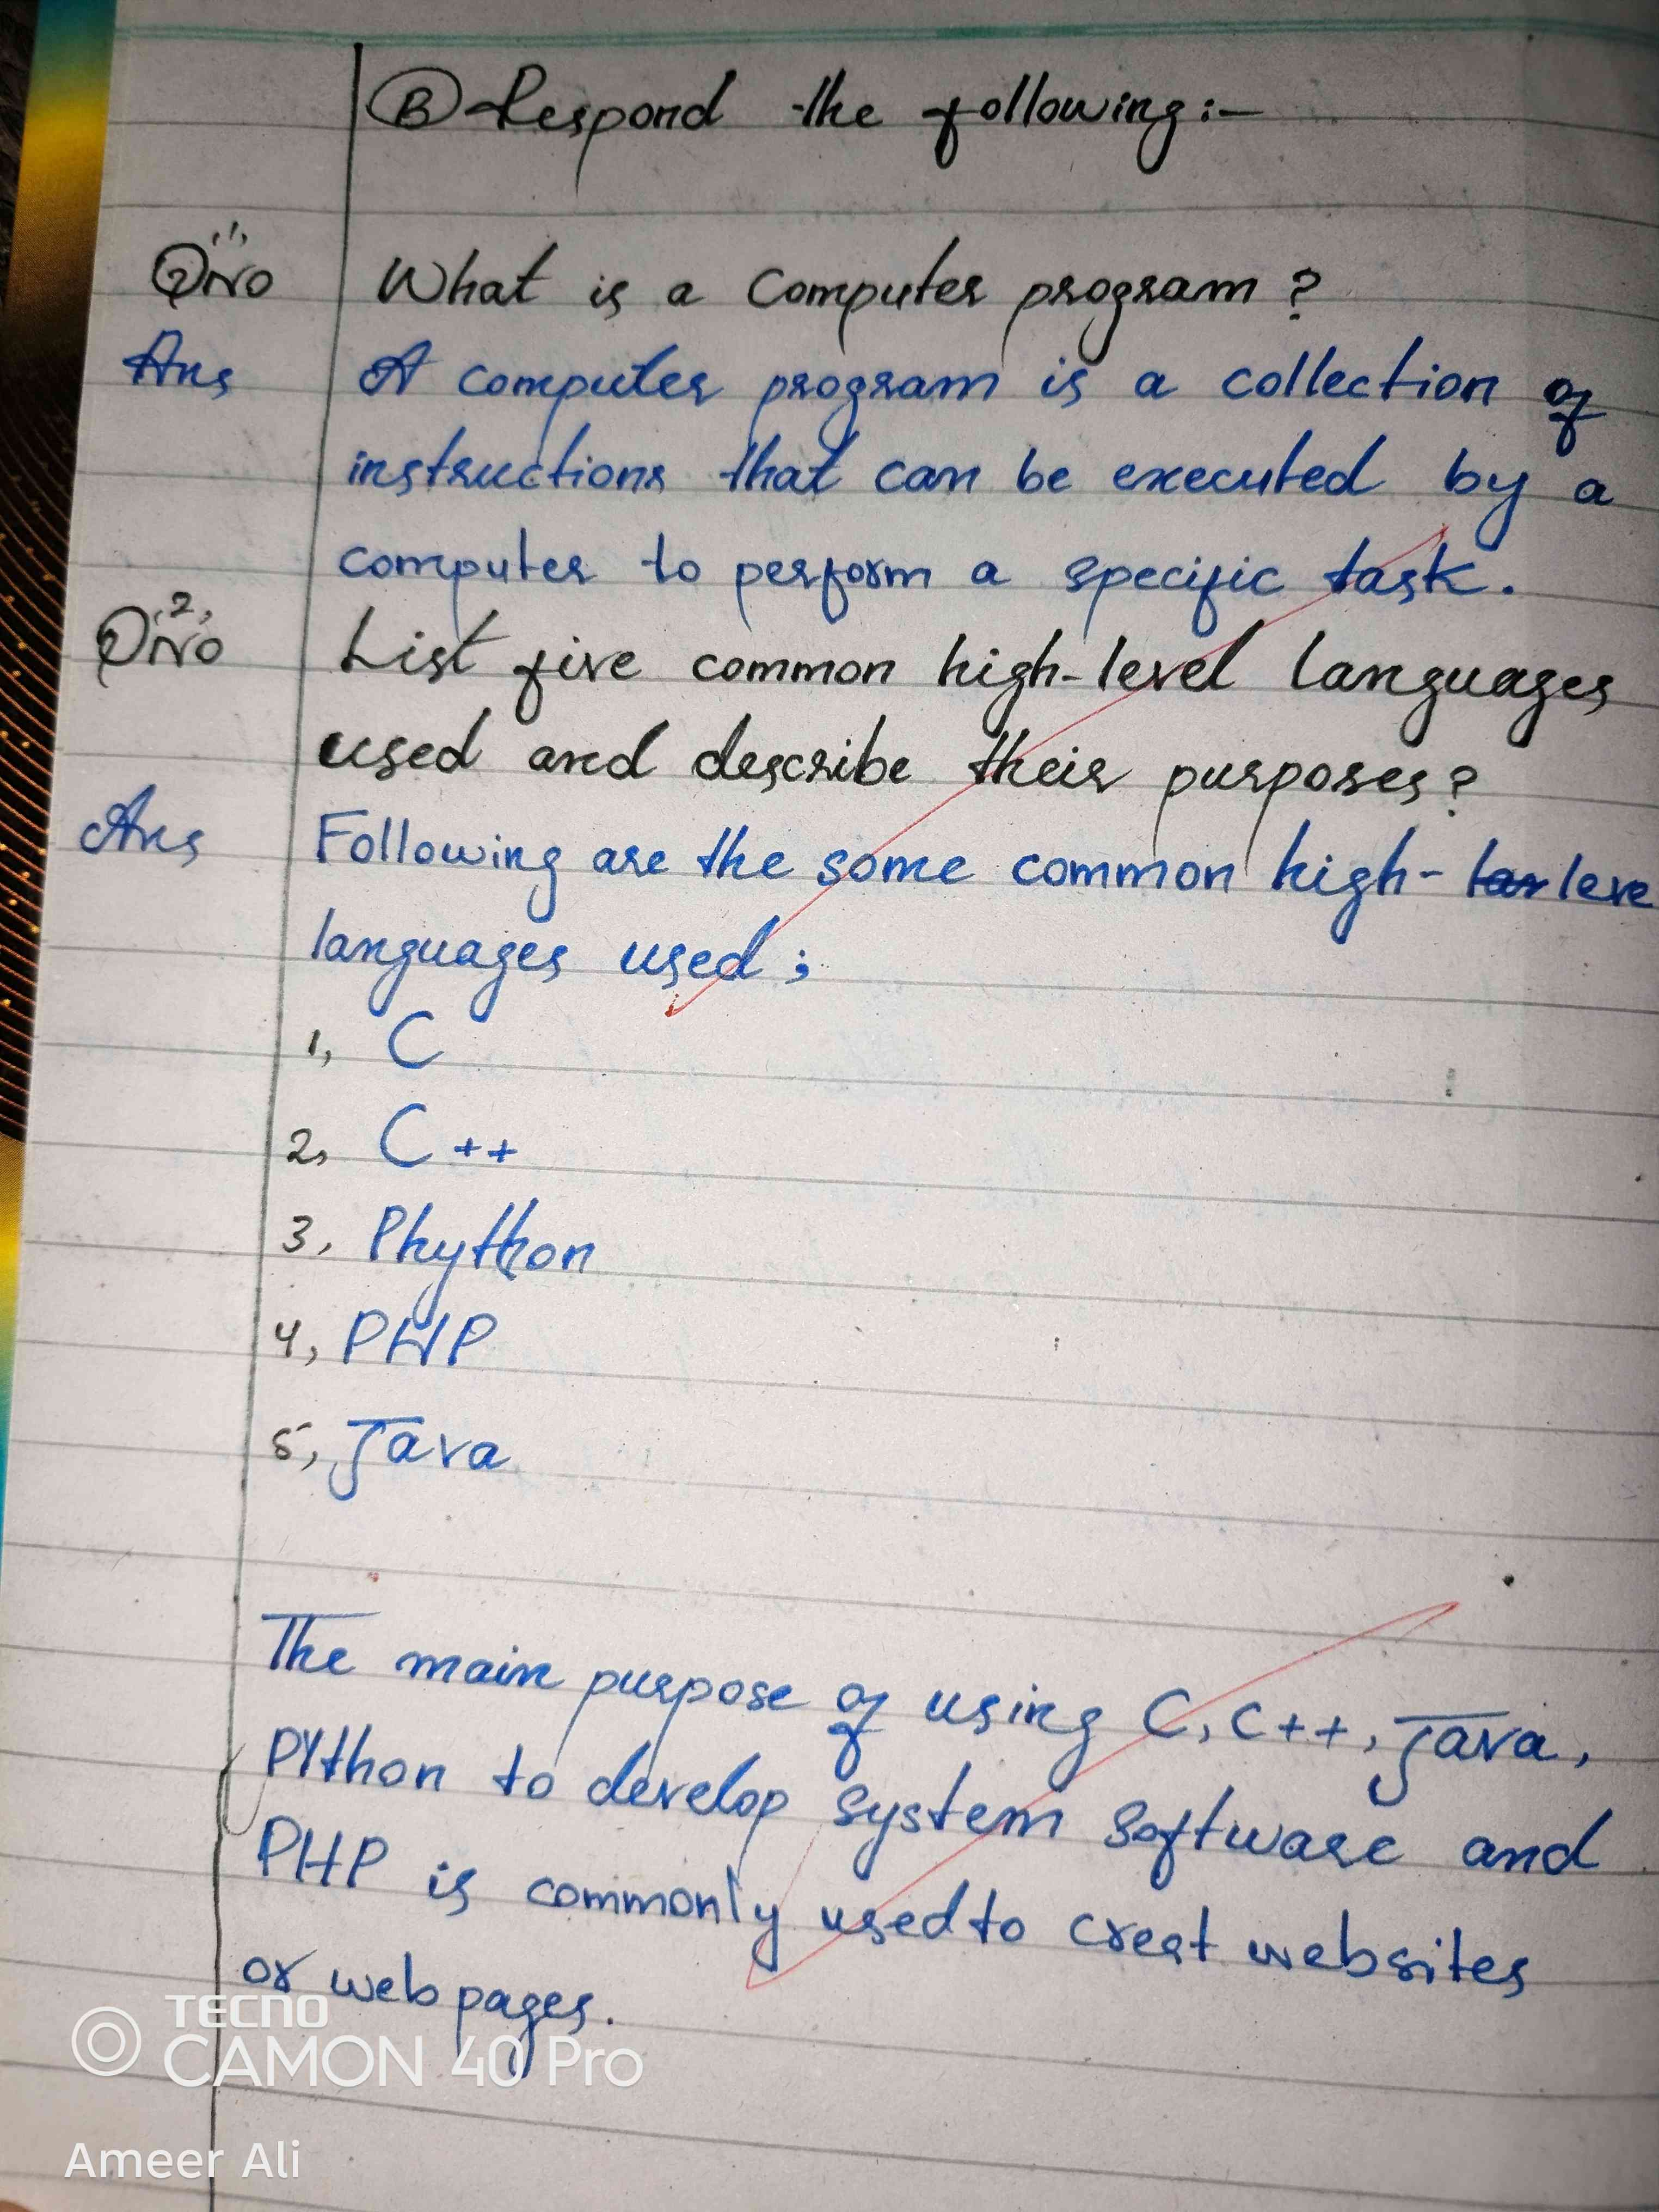 B Respond the following:-
QNo "1"
What is a Computer program?
Ans A computer program is a collection of
instructions that can be executed by a
computer to perform a specific task.
QNo "2"
List five common high-level languages
used and describe their purposes?
Ans Following are the some common high- leve
languages used;
1, C
2, C++
3, Phython
4, PHP
5, Java
The main purpose of using C, C++, Java,
PYthon to develop system software and
PHP is commonly used to creat websites
or web pages.
TECNO
CAMON 40 Pro
Ameer Ali